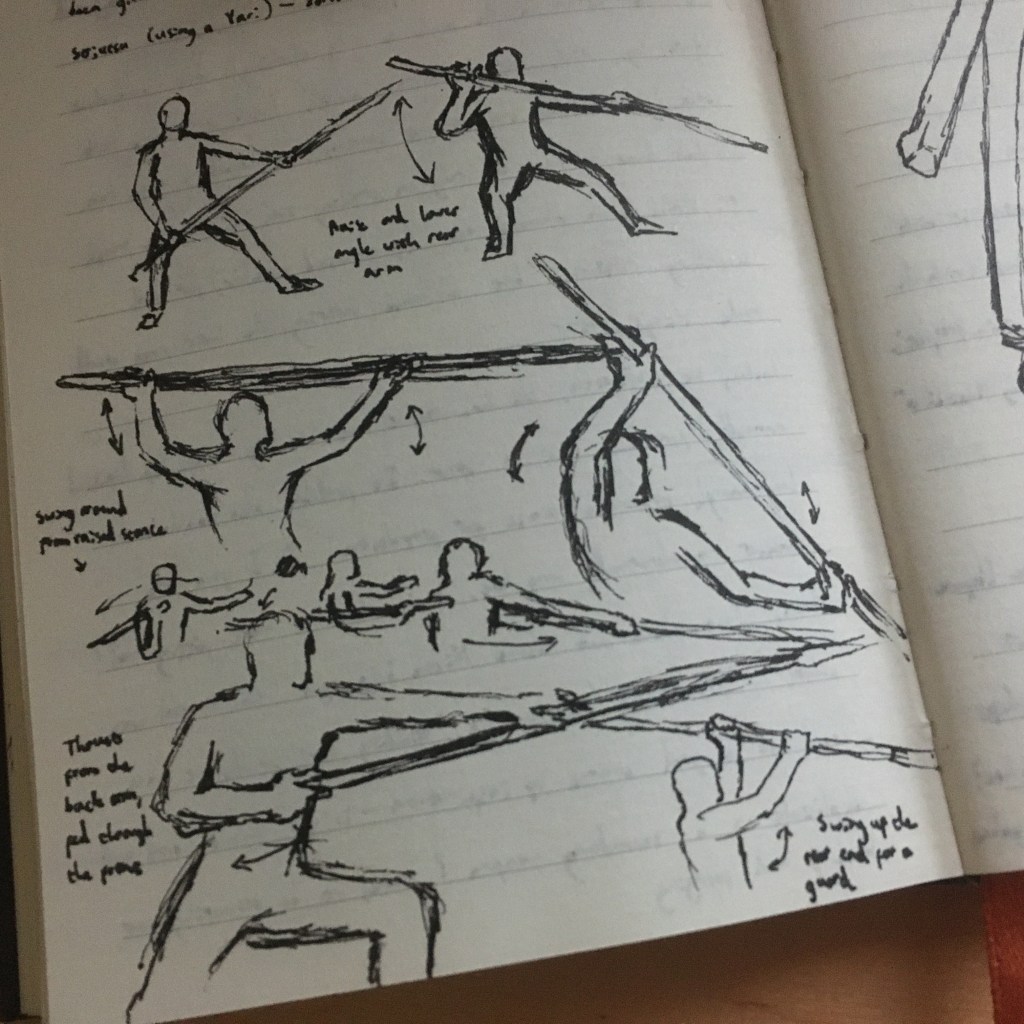 been
Sojutsu (using a Yari) –
Raise and lower
angle with rear
arm
Swing around
from raised stance
Thrusts
from the
back arm,
pull through
the prone
Swing up the
rear end for a
guard